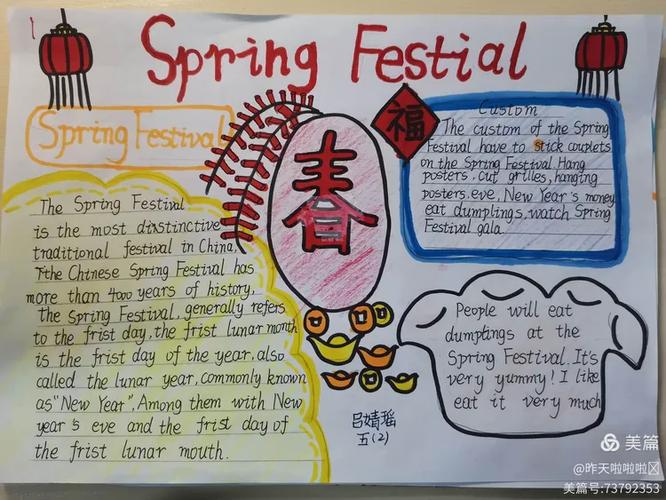 Spring Festial
Spring Festival
The Spring Festival
is the most dinstinctive
traditional festival in China.
The Chinese Spring Festival has
more than 4000 years of history.
the Spring Festival, generally refers
to the frist day, the frist lunar month
is the frist day of the year, also
called the lunar year, commonly known
as "New Year". Among them with New
year's eve and the frist day of
the frist lunar mouth.
春
福
Custom
The custom of the Spring
Festival have to stick couplets
on the Spring Festival Hang
posters, cut grilles, hanging
posters. eve, New Year's money
eat dumplings, watch Spring
Festival gala.
People will eat
dumptings at the
Spring Festival. It's
very yummy! I like
eat it very much
吕婧瑶
五(2)
美篇
@昨天啦啦啦
美篇号:73792353